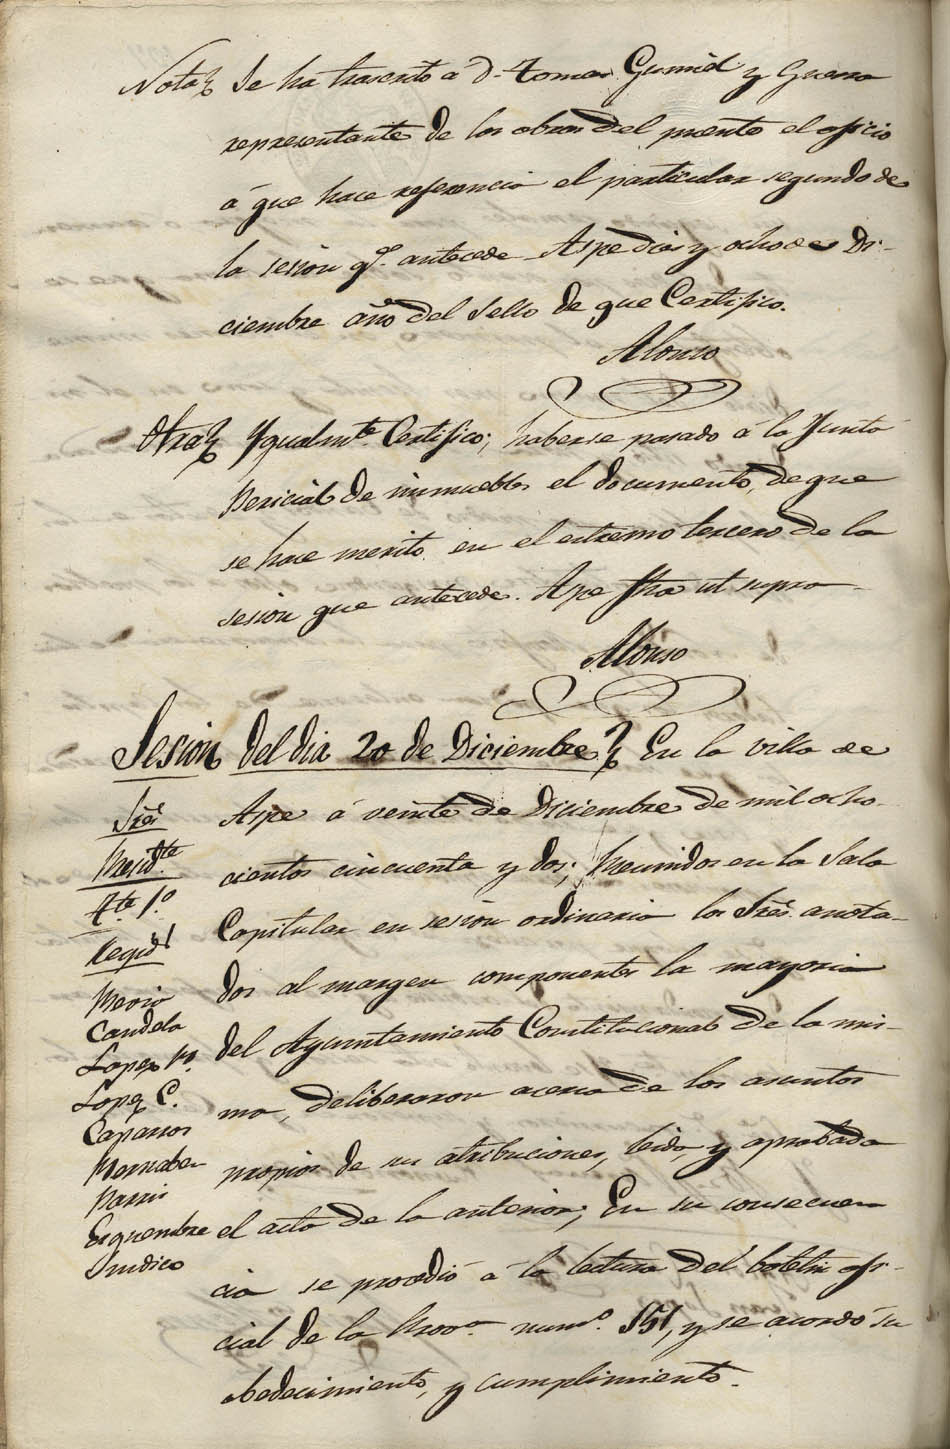 Nota} Se ha trascrito á D. Tomas y Guerra
representante de las obras del puente el oficio
á que hace referencia el particular segundo de
la sesion qe. antecede. Aspe diez y ocho de Di-
ciembre año del Sello de que Certifico.
Alonso
Otra} Ygualmte. Certifico; haberse pasado á la Junta
Pericial de inmuebles el documento, de que
se hace merito en el estremo tercero de la
sesion que antecede. Aspe fha ut supra
Alonso
Sesion del dia 20 de Diciembre} En la villa de
Aspe á veinte de Diciembre de mil ocho-
cientos cincuenta y dos; Reunidos en la Sala
Capitular en sesion ordinaria los Sres. anota-
dos al margen componentes la mayoria
del Ayuntamiento Constitucional de la mis-
ma, deliberaron acerca de los asuntos
propios de su atribuciones, leida, y aprobada
el acta de la anterior; En su consecuen
cia se procedió á la lectura del boletin ofi-
cial de la Prova. numo. 151, y se acordó su
obedecimiento, y cumplimiento.
Sres
Presidte.
Tte 1.º
Regids
Perez
Candela
Lopez P.
Lopez C.
Caparros
Pernabeu
Parris
Esquembre
Sindico